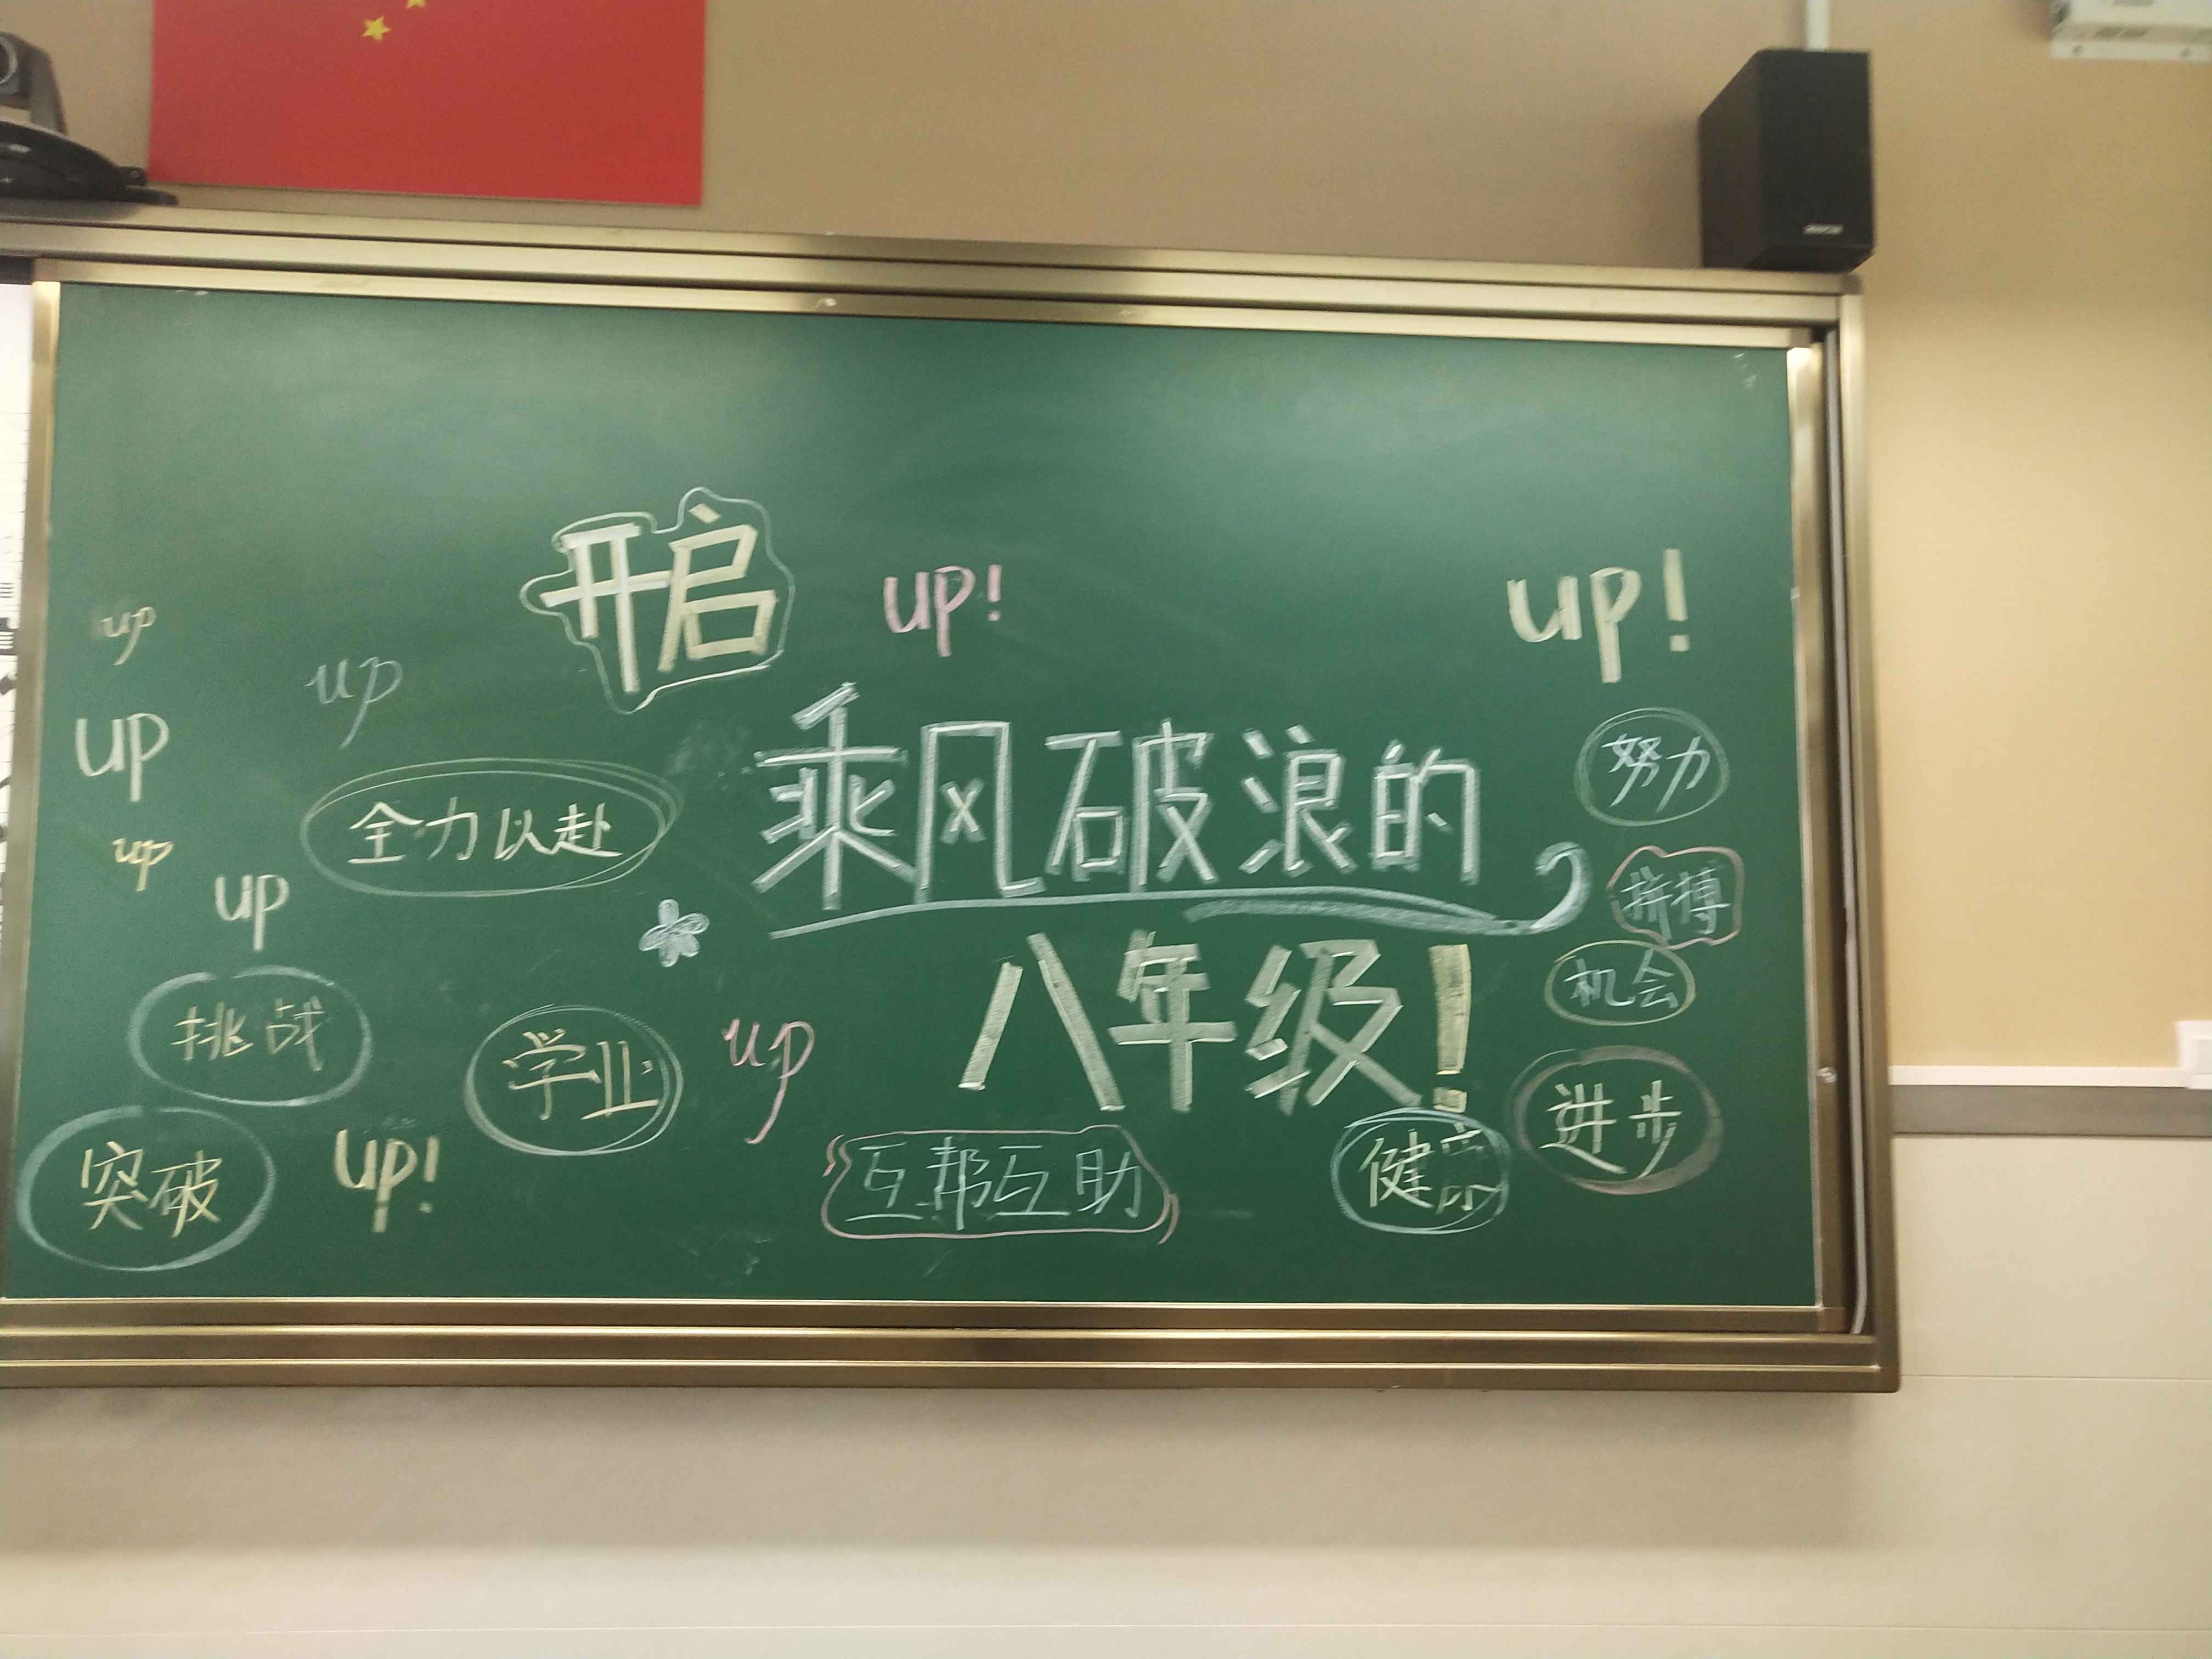 开启
up!
up!
up
up
up
乘风破浪的
努力
全力以赴
up
up
拼搏
机会
八年级!
挑战
学业
up
进步
健康
突破
up!
互帮互助